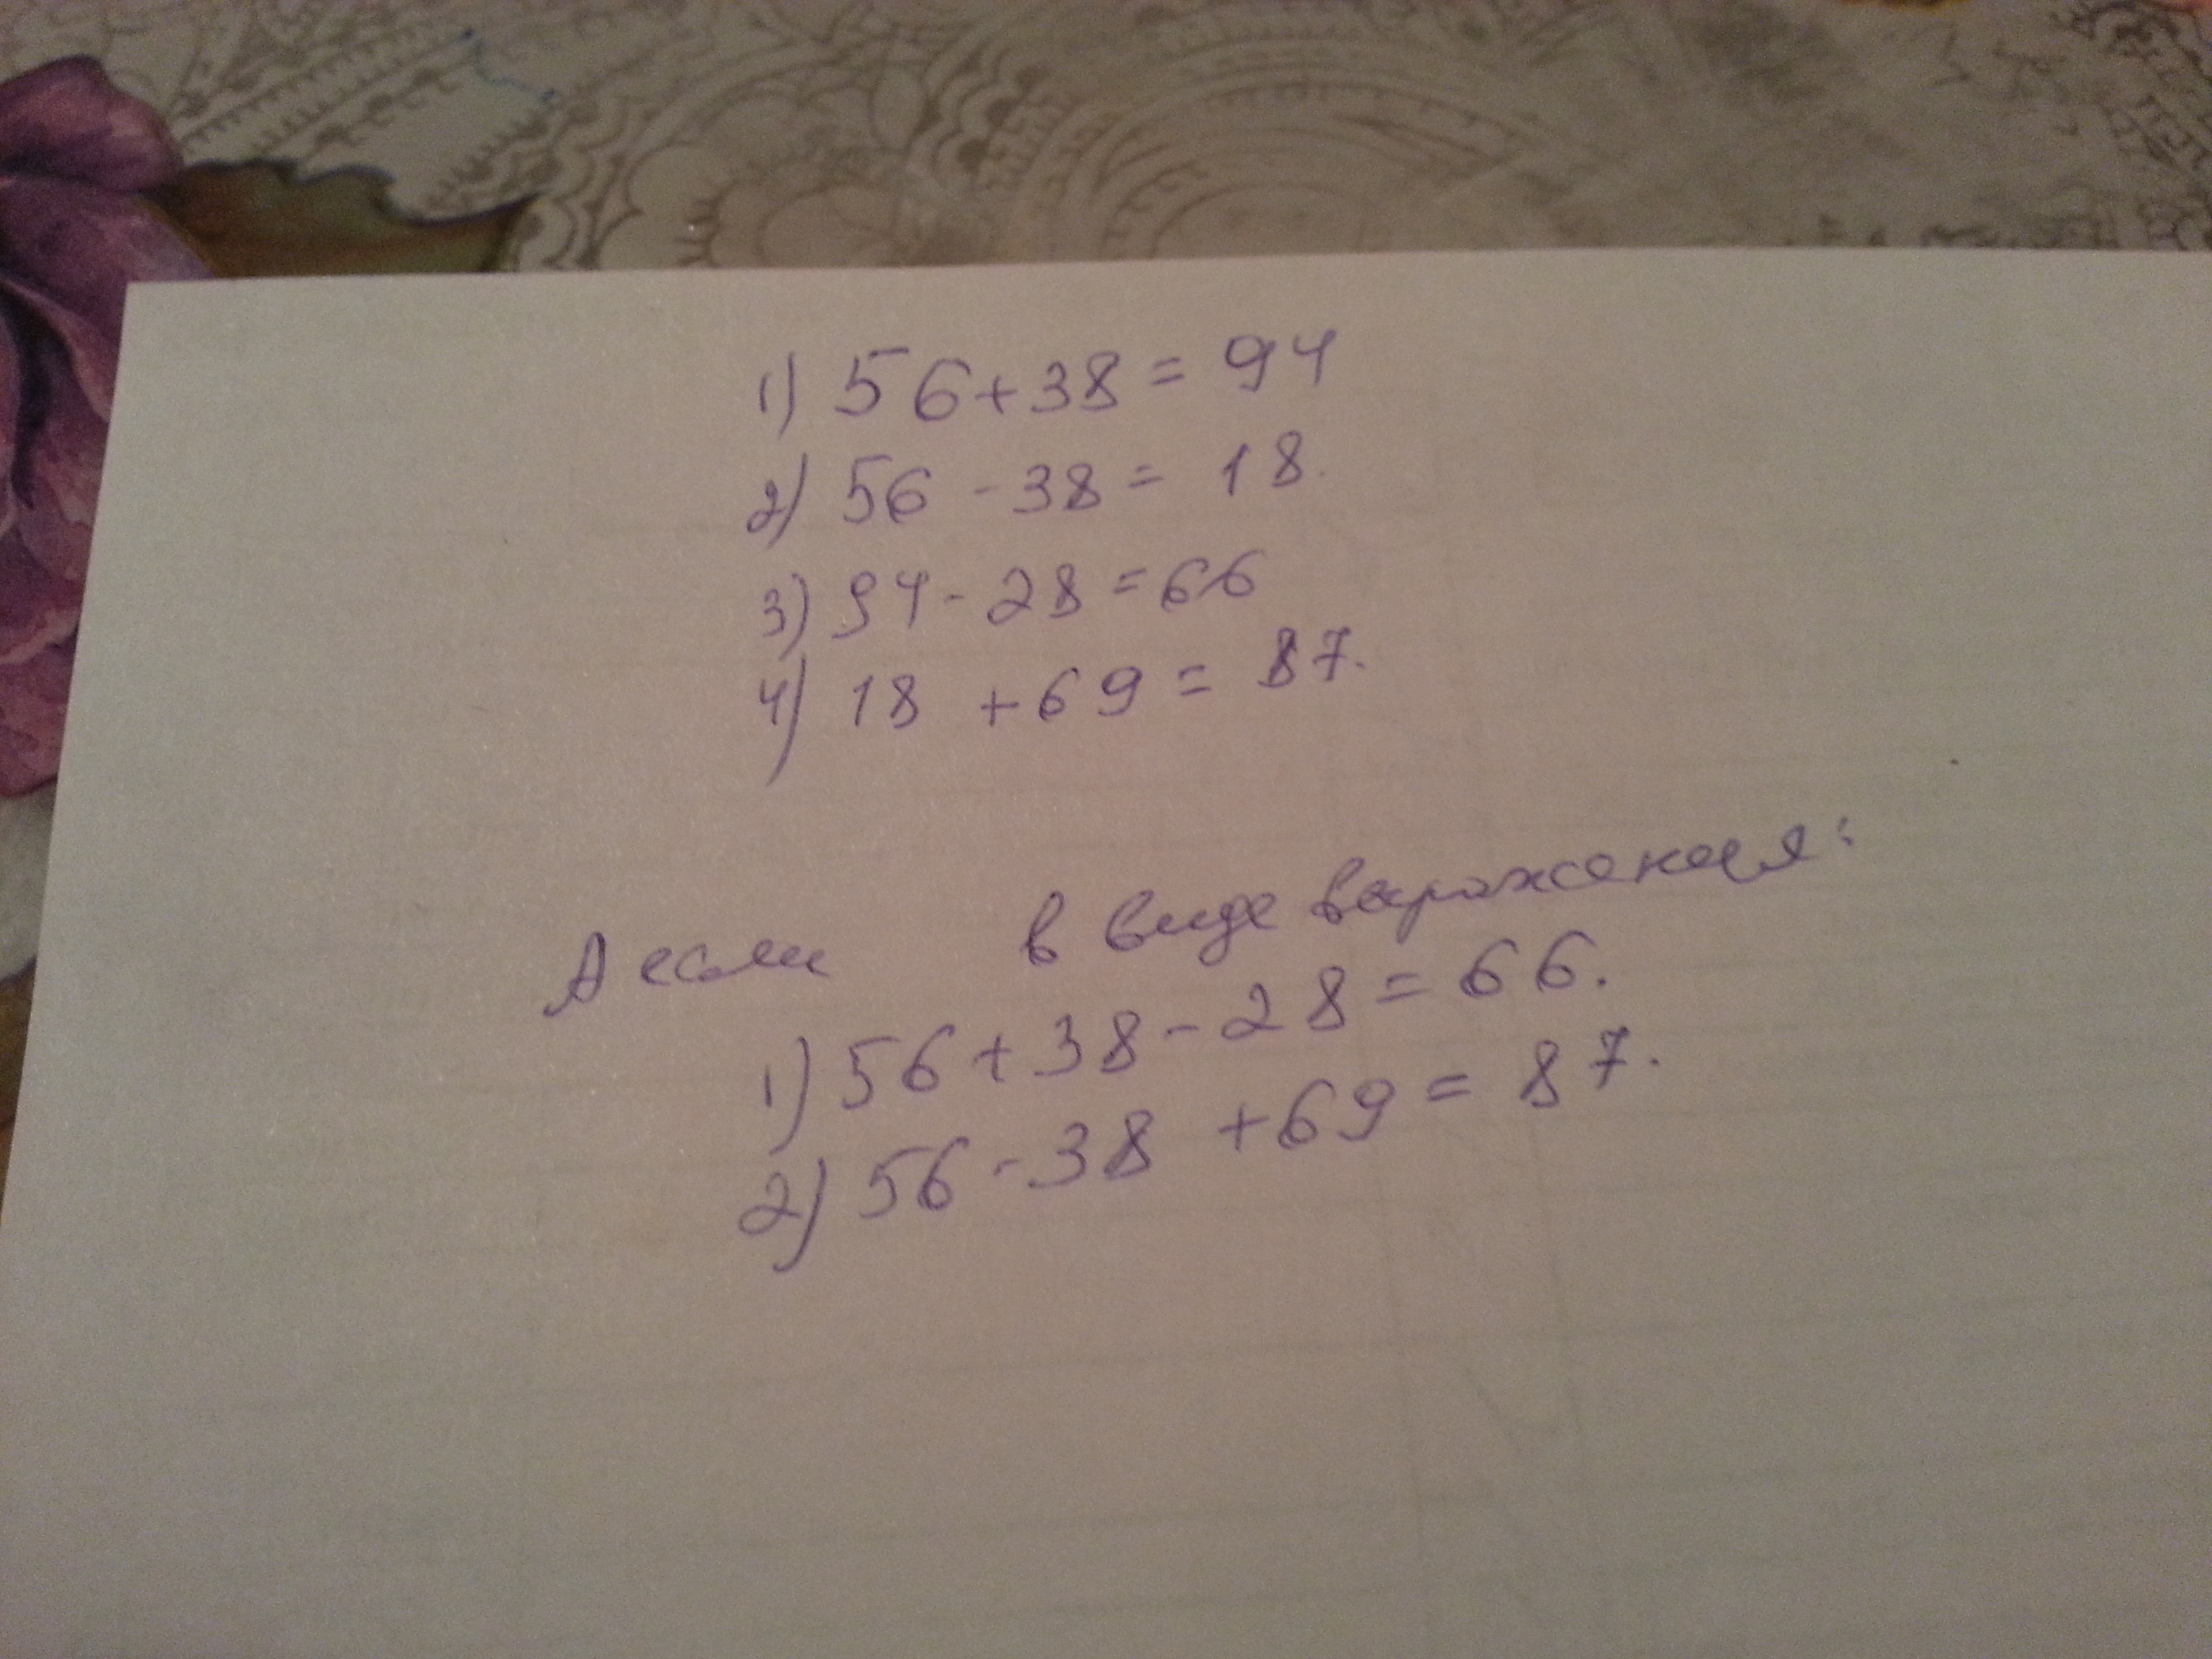 1) 56+38=94
2) 56-38=18.
3) 94-28=66
4) 18+69=87.
А если в виде выражения:
1) 56+38-28=66.
2) 56-38+69=87.